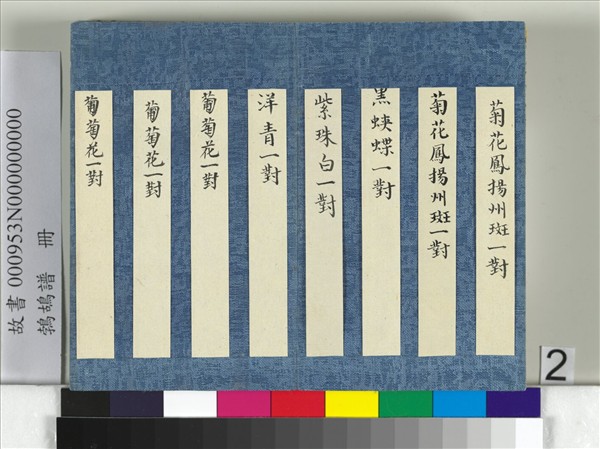 菊花鳳揚州斑一對
菊花鳳揚州斑一對
黑蛺蝶一對
紫珠白一對
洋青一對
葡萄花一對
葡萄花一對
葡萄花一對
故書 000953N000000000
鵓鴣譜 冊
2